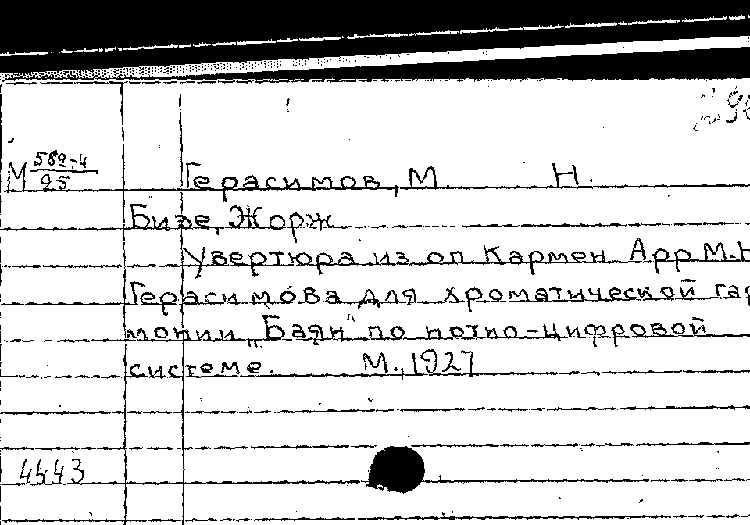 М 582-4
25
Герасимов, М. Н.
Бизе, Жорж
Увертюра из оп Кармен Арр М.Н
Герасимова для хроматической гар
монии „Баян" по нотно-цифровой
системе. М., 1927
4443